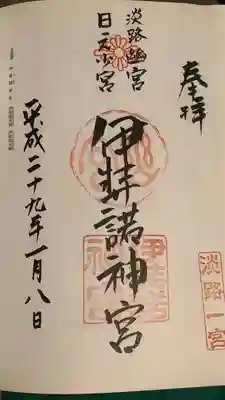 奉拝
淡路一宮
淡路幽宮
日之少宮
伊弉諾神宮
平成二十九年一月八日